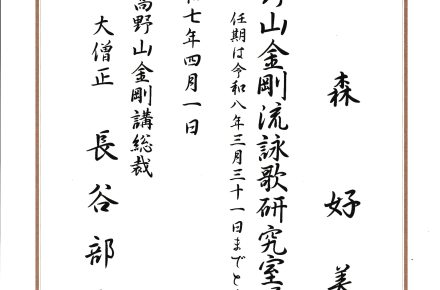 森好美
野山金剛流詠歌研究室
任期は令和八年三月三十一日までと
和七年四月一日
高野山金剛講総裁
大僧正 長谷部